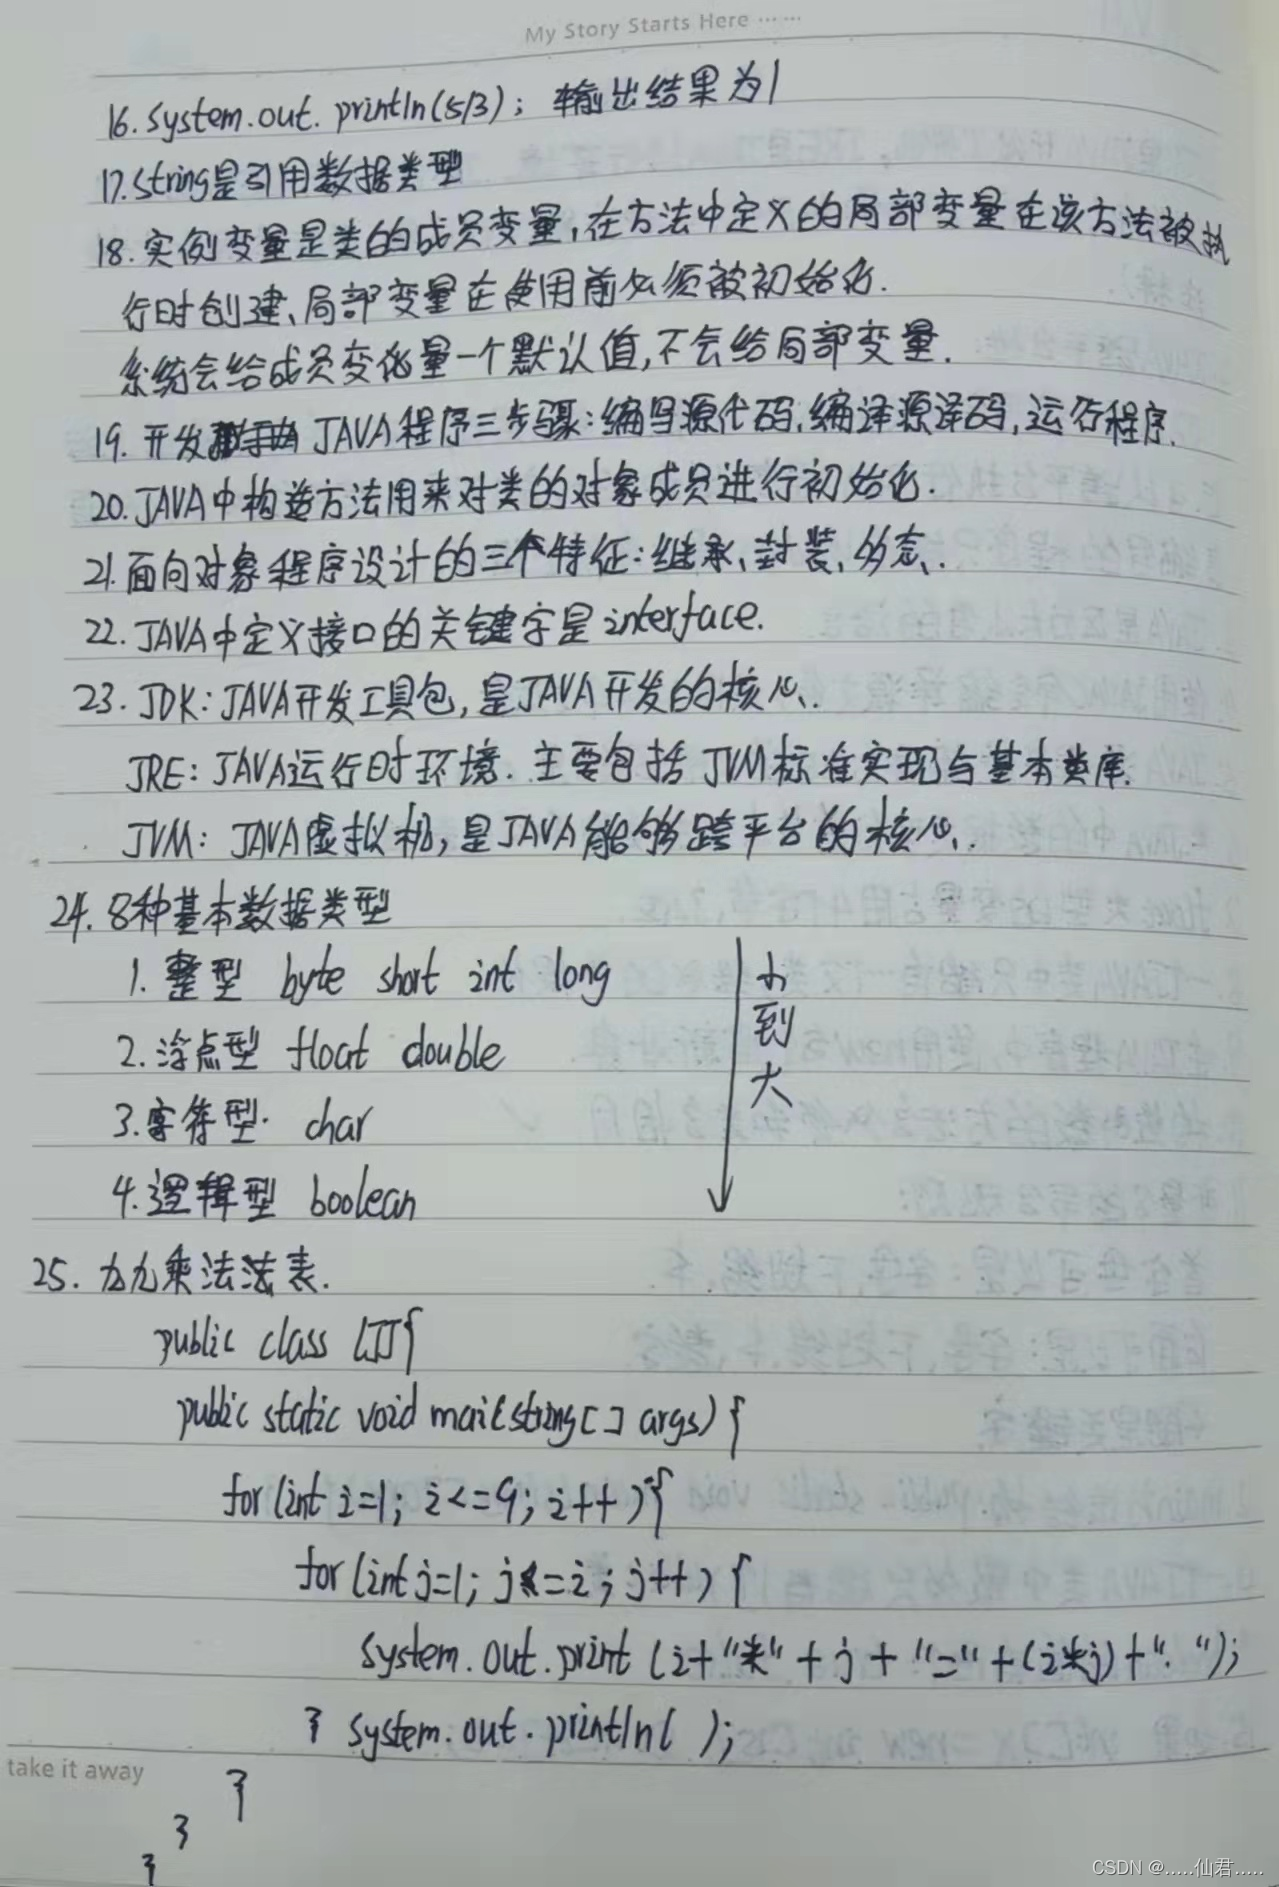 My Story Starts Here ……
16. System.out.println(5/3); 输出结果为1
17. String是引用数据类型
18. 实例变量是类的成员变量,在方法中定义的局部变量在该方法被执
行时创建、局部变量在使用前必须被初始化.
系统会给成员变化量一个默认值,不会给局部变量.
19. 开发 JAVA程序三步骤:编写源代码,编译源译码,运行程序.
20. JAVA中构造方法用来对类的对象成员进行初始化.
21. 面向对象程序设计的三个特征:继承、封装、多态.
22. JAVA中定义接口的关键字是interface.
23. JDK: JAVA开发工具包,是JAVA开发的核心.
JRE: JAVA运行时环境. 主要包括JVM标准实现与基本类库.
JVM: JAVA虚拟机,是JAVA能够跨平台的核心.
24. 8种基本数据类型
1. 整型 byte short int long
2. 浮点型 float double
3. 字符型 char
4. 逻辑型 boolean
小到大
25. 九九乘法法表.
public class LJJ{
public static void mai(string[] args) {
for(int i=1; i<=9; i++){
for(int j=1; j<=i; j++) {
system.out.print (i+"*" + j + "=" + (i*j) +" ");
} system.out.println( );
}
take it away
}
}
CSDN @.....仙君.....